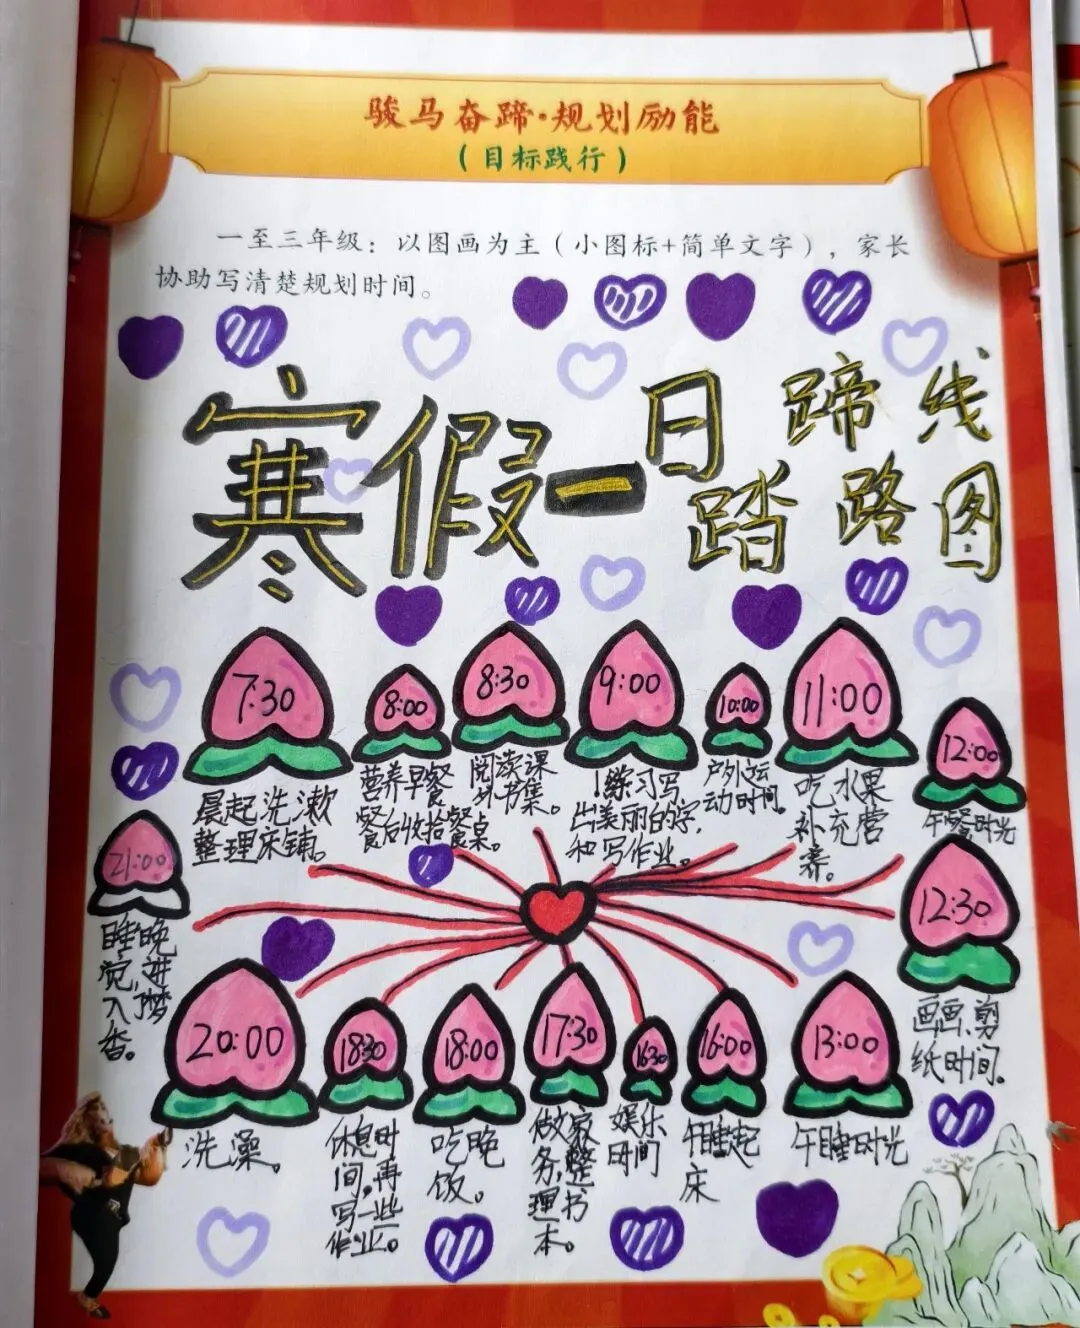 骏马奋蹄·规划励能
（目标践行）
一至三年级：以图画为主（小图标+简单文字），家长
协助写清楚规划时间。
寒假一日
蹄线
踏路图
7:30
晨起洗漱
整理床铺。
8:00
营养早餐
餐后收拾餐桌。
8:30
阅读课
外书集。
9:00
练习写
出美丽的字，
和写作业。
10:00
户外运
动时间。
11:00
吃水果
补充营
养。
12:00
午餐时光
12:30
画画、剪
纸时间。
13:00
午睡时光
16:00
午睡起
床
16:30
娱乐
时间
17:30
做家
务，整
理书
本。
18:00
吃晚
饭。
18:30
休息时
间，再
写一些
作业。
20:00
洗澡。
21:00
睡晚
觉，进
入梦
香。